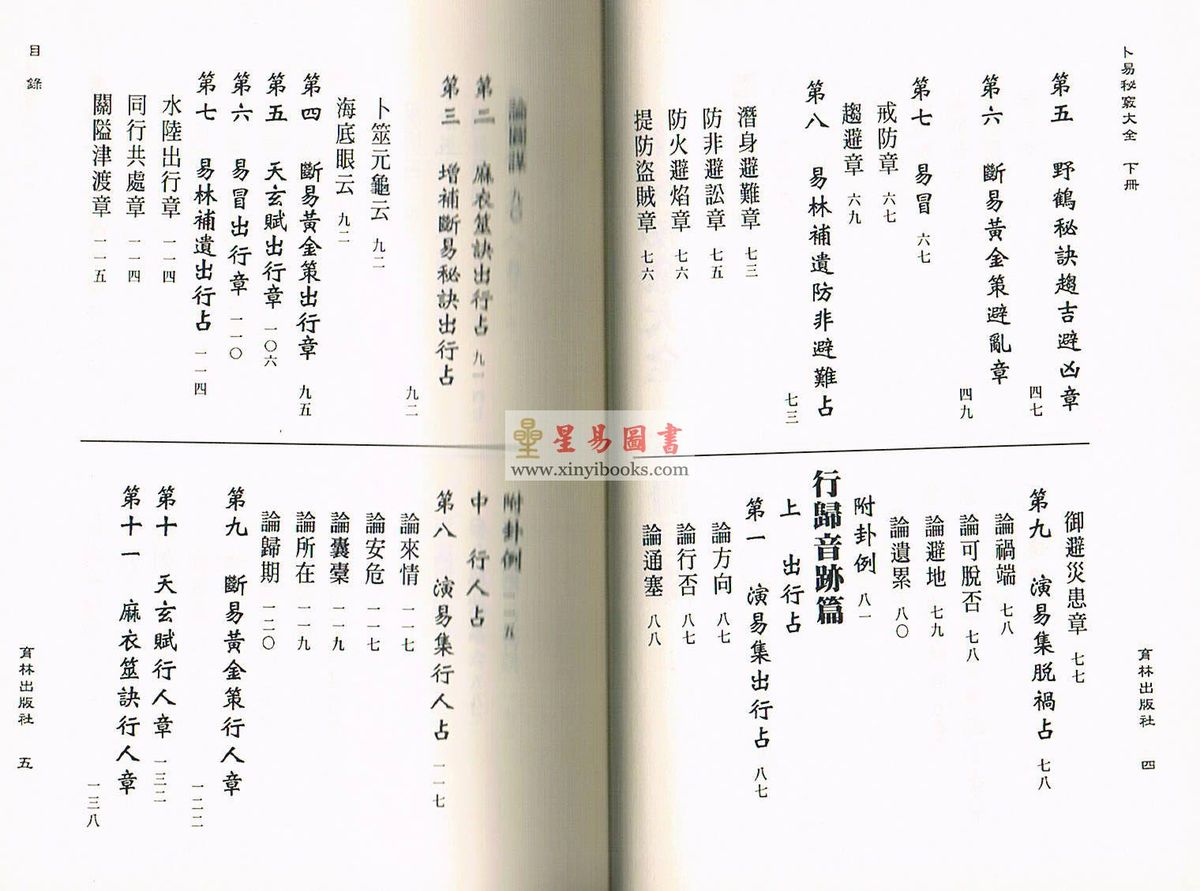 卜易秘竅大全 下冊
第五 野鶴秘訣趨吉避凶章 四七
第六 斷易黃金策避亂章 四九
第七 易冒 六七
戒防章 六七
趨避章 六九
第八 易林補遺防非避難占 七三
潛身避難章 七三
防非避訟章 七五
防火避焰章 七六
提防盜賊章 七六
御避災患章 七七
第九 演易集脫禍占 七八
論禍端 七八
論可脫否 七八
論避地 七九
論遺累 八〇
附卦例 八一
行歸音跡篇
上 出行占
第一 演易集出行占 八七
論方向 八七
論行否 八七
論通塞 八八
育林出版社 四
論圖謀 九〇
第二 麻衣筮訣出行占 九一
第三 增補斷易秘訣出行占 九二
卜筮元龜云 九二
海底眼云 九二
第四 斷易黃金策出行章 九五
第五 天玄賦出行章 一〇六
第六 易冒出行章 一一〇
第七 易林補遺出行占 一一四
水陸出行章 一一四
同行共處章 一一四
關隘津渡章 一一五
目錄
附卦例
中 行人占
第八 演易集行人占 一一七
論來情 一一七
論安危 一一七
論囊橐 一一九
論所在 一一九
論歸期 一二〇
第九 斷易黃金策行人章 一二二
第十 天玄賦行人章 一三二
第十一 麻衣筮訣行人章 一三八
育林出版社 五
星易圖書
www.xinyibooks.com